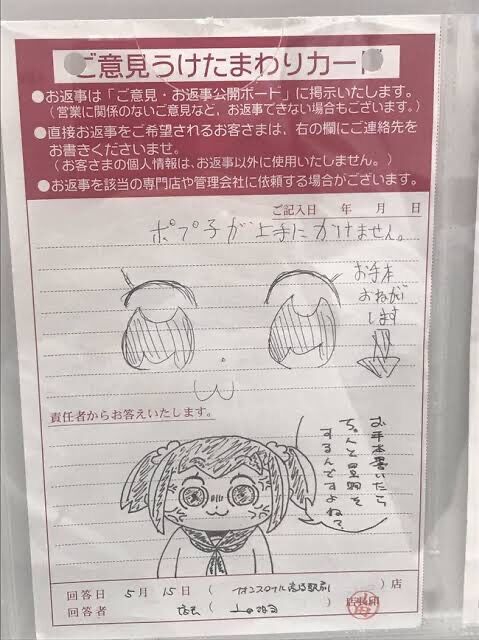 ご意見うけたまわりカード
●お返事は「ご意見・お返事公開ボード」に掲示いたします。
(営業に関係のないご意見など、お返事できない場合もございます。)
●直接お返事をご希望されるお客さまは、右の欄にご連絡先を
お書きくださいませ。
(お客さまの個人情報は、お返事以外に使用いたしません。)
●お返事を該当の専門店や管理会社に依頼する場合がございます。
ご記入日 年 月 日
ポプ子が上手にかけません。
お手本
おねがい
します
責任者からお答えいたします。
お手本書いたら
ちゃんと買物を
するんですよね?
回答日 5月 15日 ( ) 店
回答者 店長